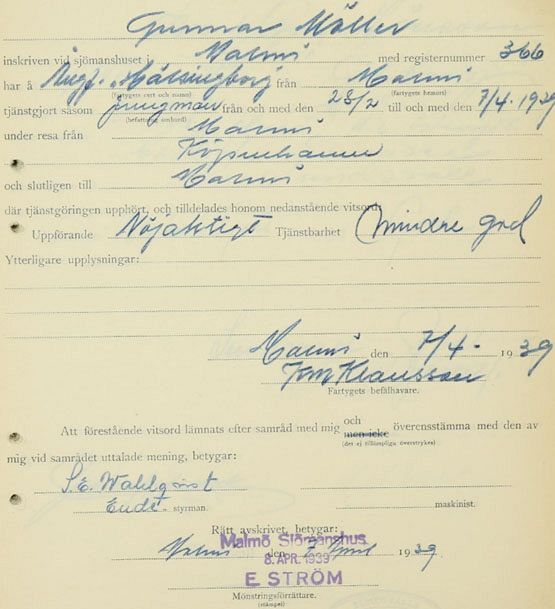 Gunnar Möller
inskriven vid sjömanshuset i Malmö med registernummer 366
har å Ångf. Mälsingborg från Malmö
(fartygets sort och namn) (fartygets hemort)
tjänstgjort såsom jungman från och med den 23/2 till och med den 7/4 1939
(befattning ombord)
under resa från Malmö
Köpenhamn
och slutligen till Malmö
där tjänstgöringen upphört, och tilldelades honom nedanstående vitsord:
Uppförande Nöjaktigt Tjänstbarhet Mindre god
Ytterligare upplysningar:
Malmö den 7/4 - 1939
Klausson
Fartygets befälhavare.
Att förestående vitsord lämnats efter samråd med mig och men icke överensstämma med den av
(det ej tillämpliga överstrykes)
mig vid samrådet uttalade mening, betygar:
S.E. Wahlqvist
Ende styrman. maskinist.
Rätt avskrivet, betygar:
Malmö den April 1939
Malmö Sjömanshus
8. APR. 1939
E STRÖM
Mönstringsförrättare.
(stämpel)